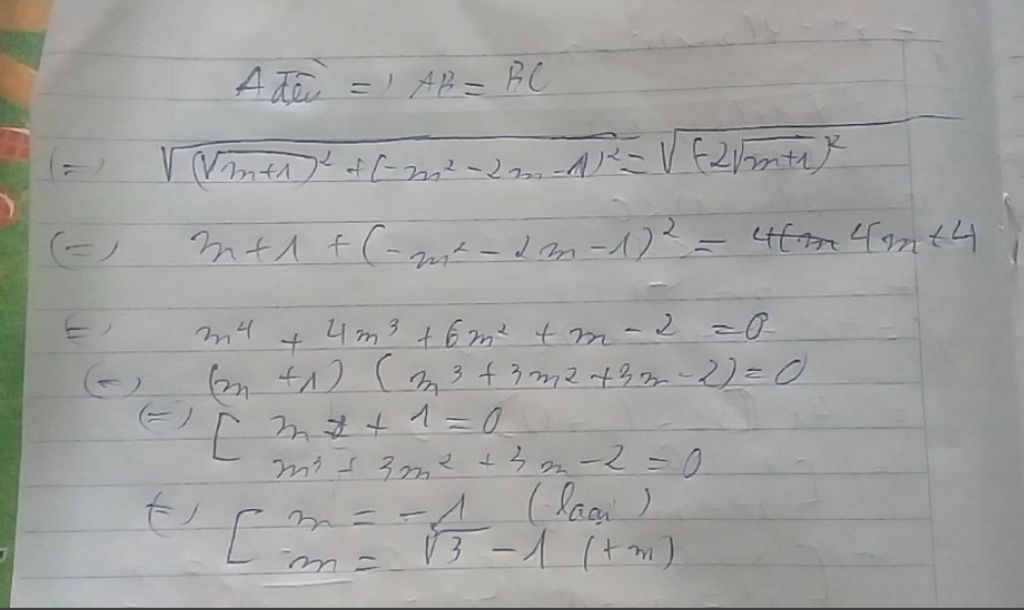 Δ đều => AB = BC
(=) √((√m+1)² + (-m² - 2m - 1)²) = √((-2√m+1)²)
(=) m + 1 + (-m² - 2m - 1)² = 4m + 4
(=) m⁴ + 4m³ + 6m² + m - 2 = 0
(=) (m + 1) (m³ + 3m² + 3m - 2) = 0
(=) [ m + 1 = 0
m³ + 3m² + 3m - 2 = 0
(=) [ m = -1 (loại)
m = ∛3 - 1 (tm)